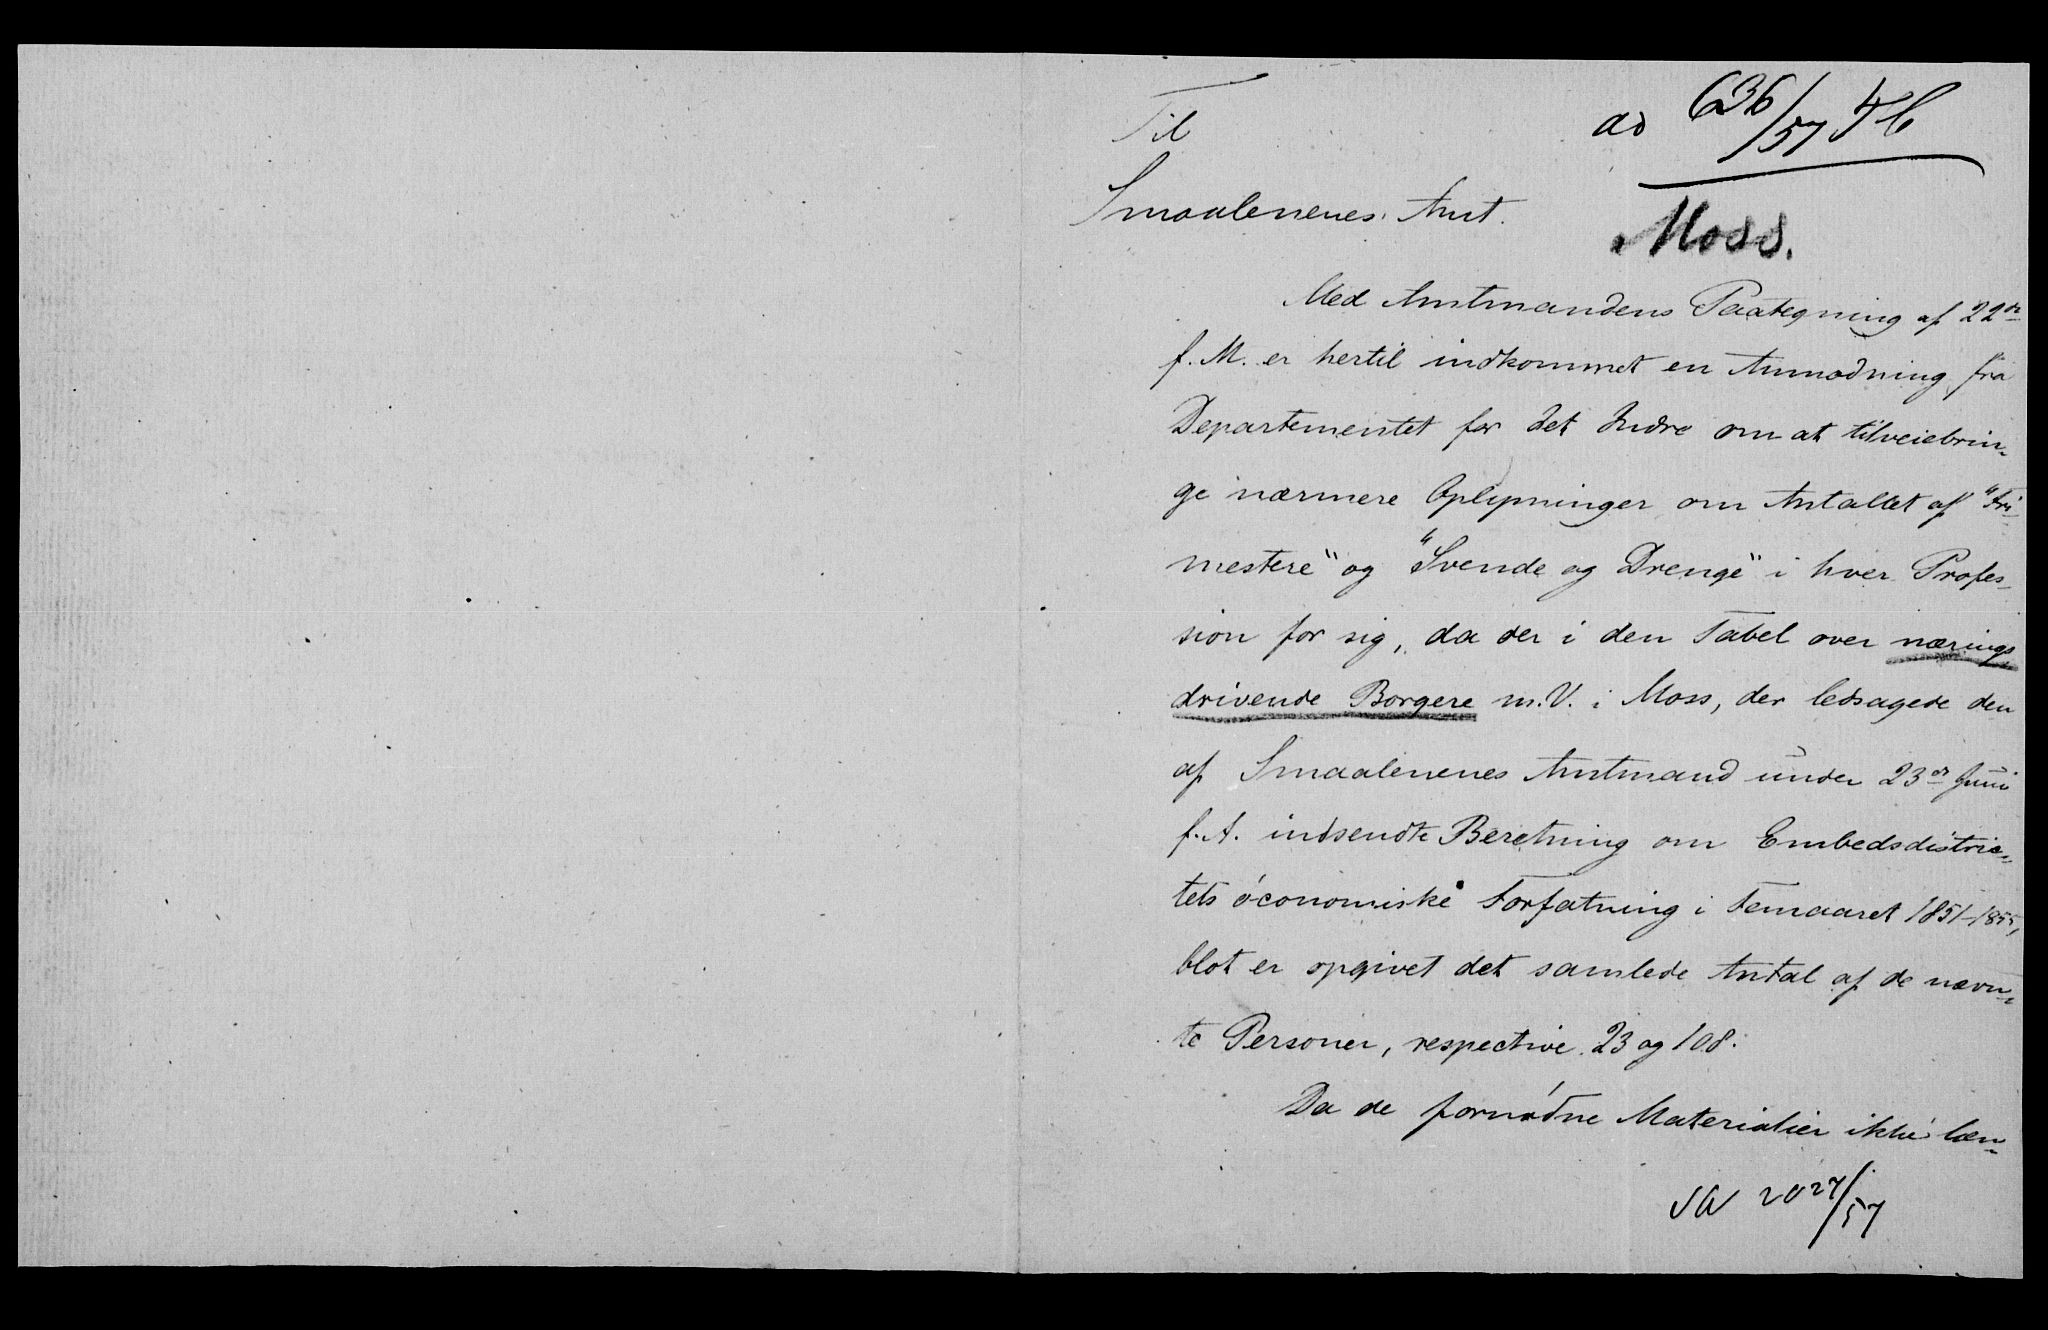 Til
ad 636/57 4 C
Smaalenenes Amt.
Moss.
Med Amtmandens Paategning af 22de
f. M. er hertil indkommet en Anmodning fra
Departementet for det Indre om at tilveiebrin-
ge nærmere Oplysninger om Antallet af "Fri-
mestere" og "Svende og Drenge" i hver Profes-
sion for sig, da der i den Tabel over nærings
drivende Borgere m.V. i Moss, der ledsagede den
af Smaalenenes Amtmand under 23de Juni
f. A. indsendte Beretning om Embedsdistric-
tets öconomiske Forfatning i Femaaret 1851-1855,
blot er opgivet det samlede Antal af de nævn-
te Personer, respective 23 og 108.
Da de fornødne Materialier ikke læn-
2027/57